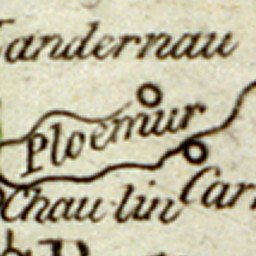 andernau
Ploemur
Chau-lin Car